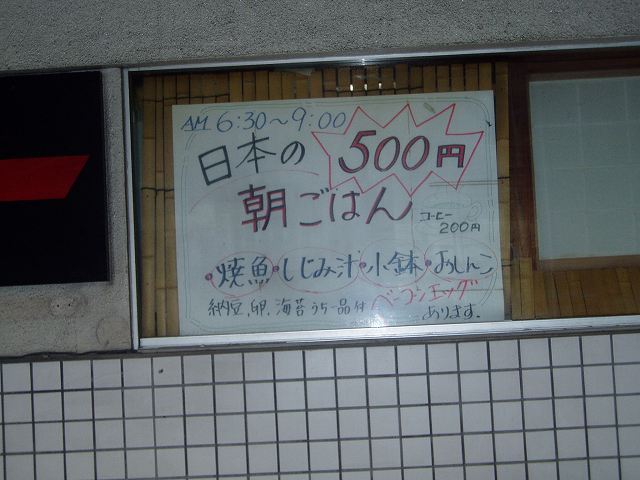 AM 6:30～9:00
日本の 500円
朝ごはん
コーヒー
200円
・焼魚・しじみ汁・小鉢・おしんこ
納豆、卵、海苔うち一品付
ベーコンエッグ
あります。